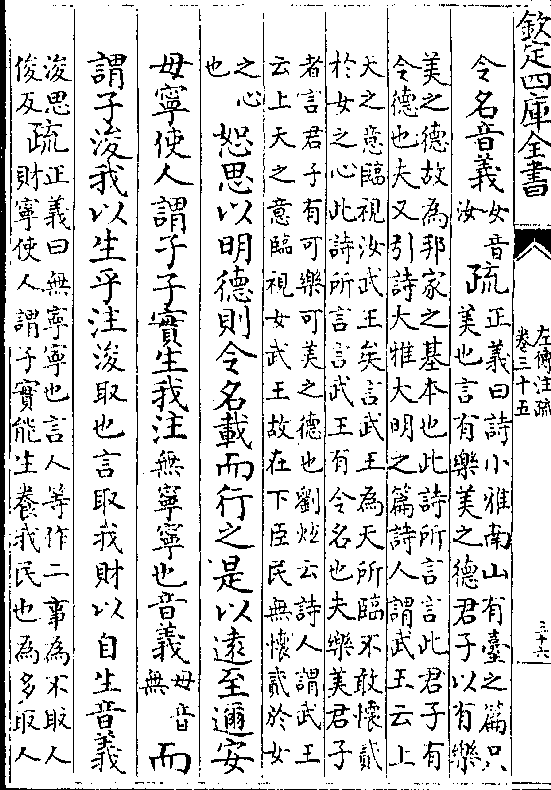 欽定四庫全書
左傳注疏
卷三十五
三十六
令名音義女音汝疏正義曰詩小雅南山有臺之篇只美也言有樂美之德君子以有樂
美之德故為邦家之基本也此詩所言言此君子有
令德也夫又引詩大雅大明之篇詩人謂武王云上
天之意臨視汝武王矣言武王為天所臨不敢懷貳
於女之心此詩所言言武王有令名也夫樂美君子
者言君子有可樂可美之德也劉炫云詩人謂武王
云上天之意臨視女武王故在下臣民無懷貳於女
之心也恕思以明德則令名載而行之是以遠至邇安
毋寧使人謂子子實生我注無寧寧也音義毋音無而
謂子浚我以生乎注浚取也言取我財以自生音義
浚思俊反疏正義曰無寧寧也言人等作二事為不取人財寧使人謂子實能生養我民也為多取人